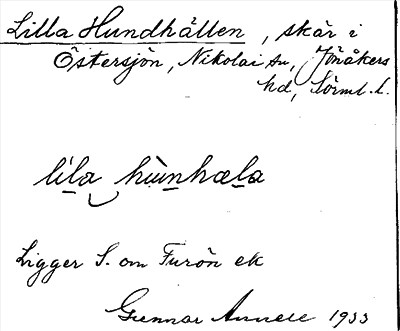 Lilla Hundhällen, skär i
Östersjön, Nikolai sn, Jönåkers
hd, Sörml. l.
li̱la hùṉhæḻa
Ligger S. om Furön ek
Gunnar Annell 1933